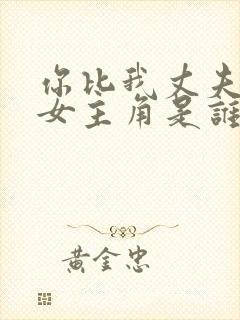 你比我丈夫
女主角是誰
黃金忠